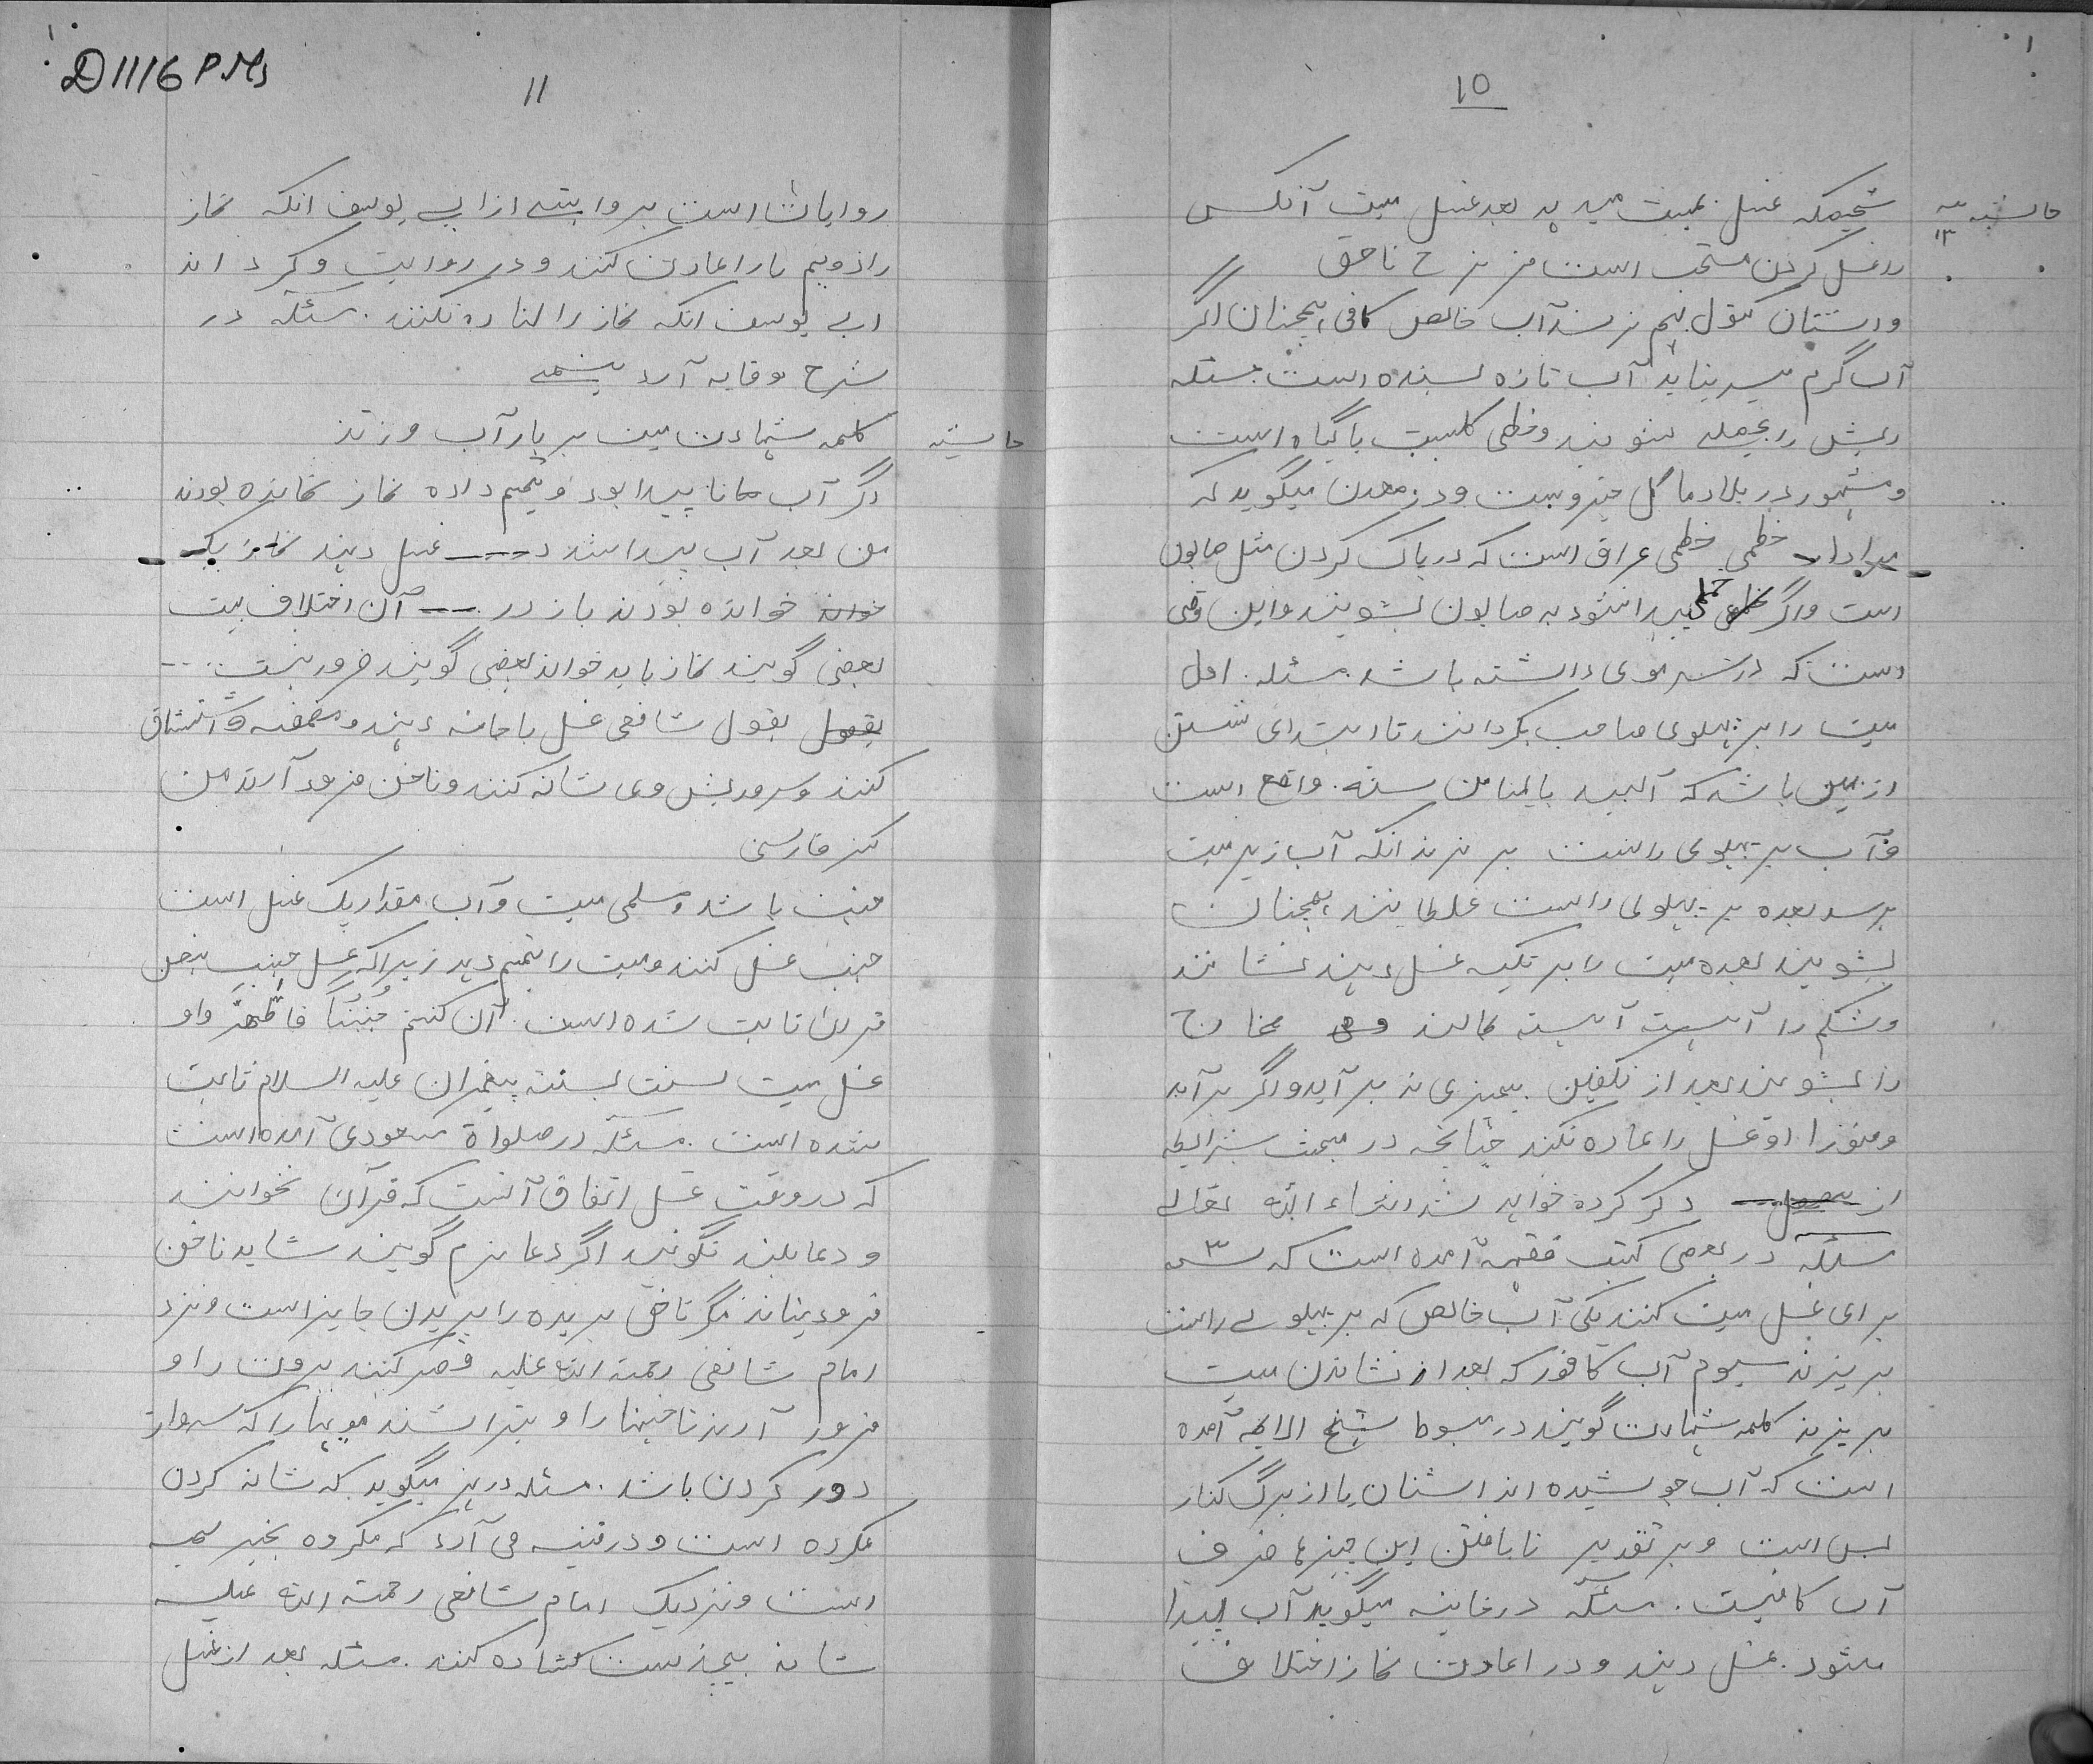 10
حاشیه ۱۳
شخصیکه غسل بمیت میدهد بعد غسل میت آنکس
را غسل کردن مستحب است
آب خالص کافی همچنان اگر
آب گرم میسر نیاید آب تازه بسنده است مسئله
ریش را بخطمی بشویند و خطمی گلیست یا گیاه است
و مشهور در بلاد ما گل خیرو است و در معدن میگوید که
مراد از خطمی خطمی عراق است که در پاک کردن مثل صابون
است و اگر خطمی پیدا نشود به صابون بشویند و این وقتی
است که در سر موی داشته باشد. مسئله. اول
میت را بر پهلوی چپ بگردانند تا ابتدای شستن
از یمین باشد که سنة واقع است
و آب بر پهلوی راست بریزند انکه آب زیر میت
برسد بعده بر پهلوی راست غلطانند همچنان
بشویند بعده میت را بر تکیه غسل دهند نشانند
و شکم را آهسته آهسته بمالند مخارج
را بشویند بعد از تکفین چیزی نه بر آید و اگر بر آید
وضوء او غسل را اعاده نکند چنانچه در مبحث شرایط
از ذکر کرده خواهد شد انشاء الله تعالی
مسئله در بعضی کتب فقهیه آمده است که ۳
برای غسل میت کنند یکی آب خالص که بر پهلوے راست
بریزند سیوم آب کافور که بعد از نشاندن میت
بریزند کلمه شهادت گویند در مبسوط شیخ آمده
است که آب جوشیده اند اشنان یا از برگ کنار
بس است و بر تقدیر نایافتن این چیزها صرف
آب کافیست. مسئله در خانیه میگوید آب پیدا
میشود. غسل دهند و در اعادت نماز اختلاف
D1116 P.Ms
11
روایات است بروایتے از ابی یوسف انکه نماز
را دویم بار اعادت کنند و در روایت
ابی یوسف انکه نماز را نکنند. مسئله در
شرح وقایه آرد
حاشیه
کلمه شهادت میت هر بار آب
دگر آب پیدا بود و تیمم داده نماز خوانده بودند
من بعد آب پیدا شد --- غسل دهند
خواند خوانده بودند باز در --- آن اختلاف میت
بعضی گویند نماز باید خواند بعضی گویند ضرور نیست ...
بقول بقول شافعی غسل با جامه دهند و مضمضه و استنشاق
کنند و سر و ریش وی شانه کنند و ناخن فرود آرند من
کنز فارسی
جنب باشد و مسلمی میت و آب مقدار یک غسل است
جنب غسل کنند و میت را تیمم دهد زیرا که غسل جنب بنص
قرآن ثابت شده است. ان کنتم جُنُبًا فاطَّهَّروا و
غسل میت بسنت پیغمبران علیه السلام ثابت
شده است. مسئله در صلواة مسعودی آمده است
که در وقت غسل اتفاق آنست که قرآن نخوانند
و دعا بلند نگویند اگر دعا نرم گویند شاید ناخن
فرو نیارند مگر ناخن بریده را بریدن جایز است و نزد
امام شافعی رحمة الله علیه قصر کنند بروت را و
فرود آرند ناخنها را و بتراشند مویها را که سزاوار
دور کردن باشد. مسئله در میگوید که شانه کردن
مکروه است و در قنیه می آرد که مکروه
است و نزدیک امام شافعی رحمة الله علیه
شانه کشاده کنند. مسئله بعد از غسل